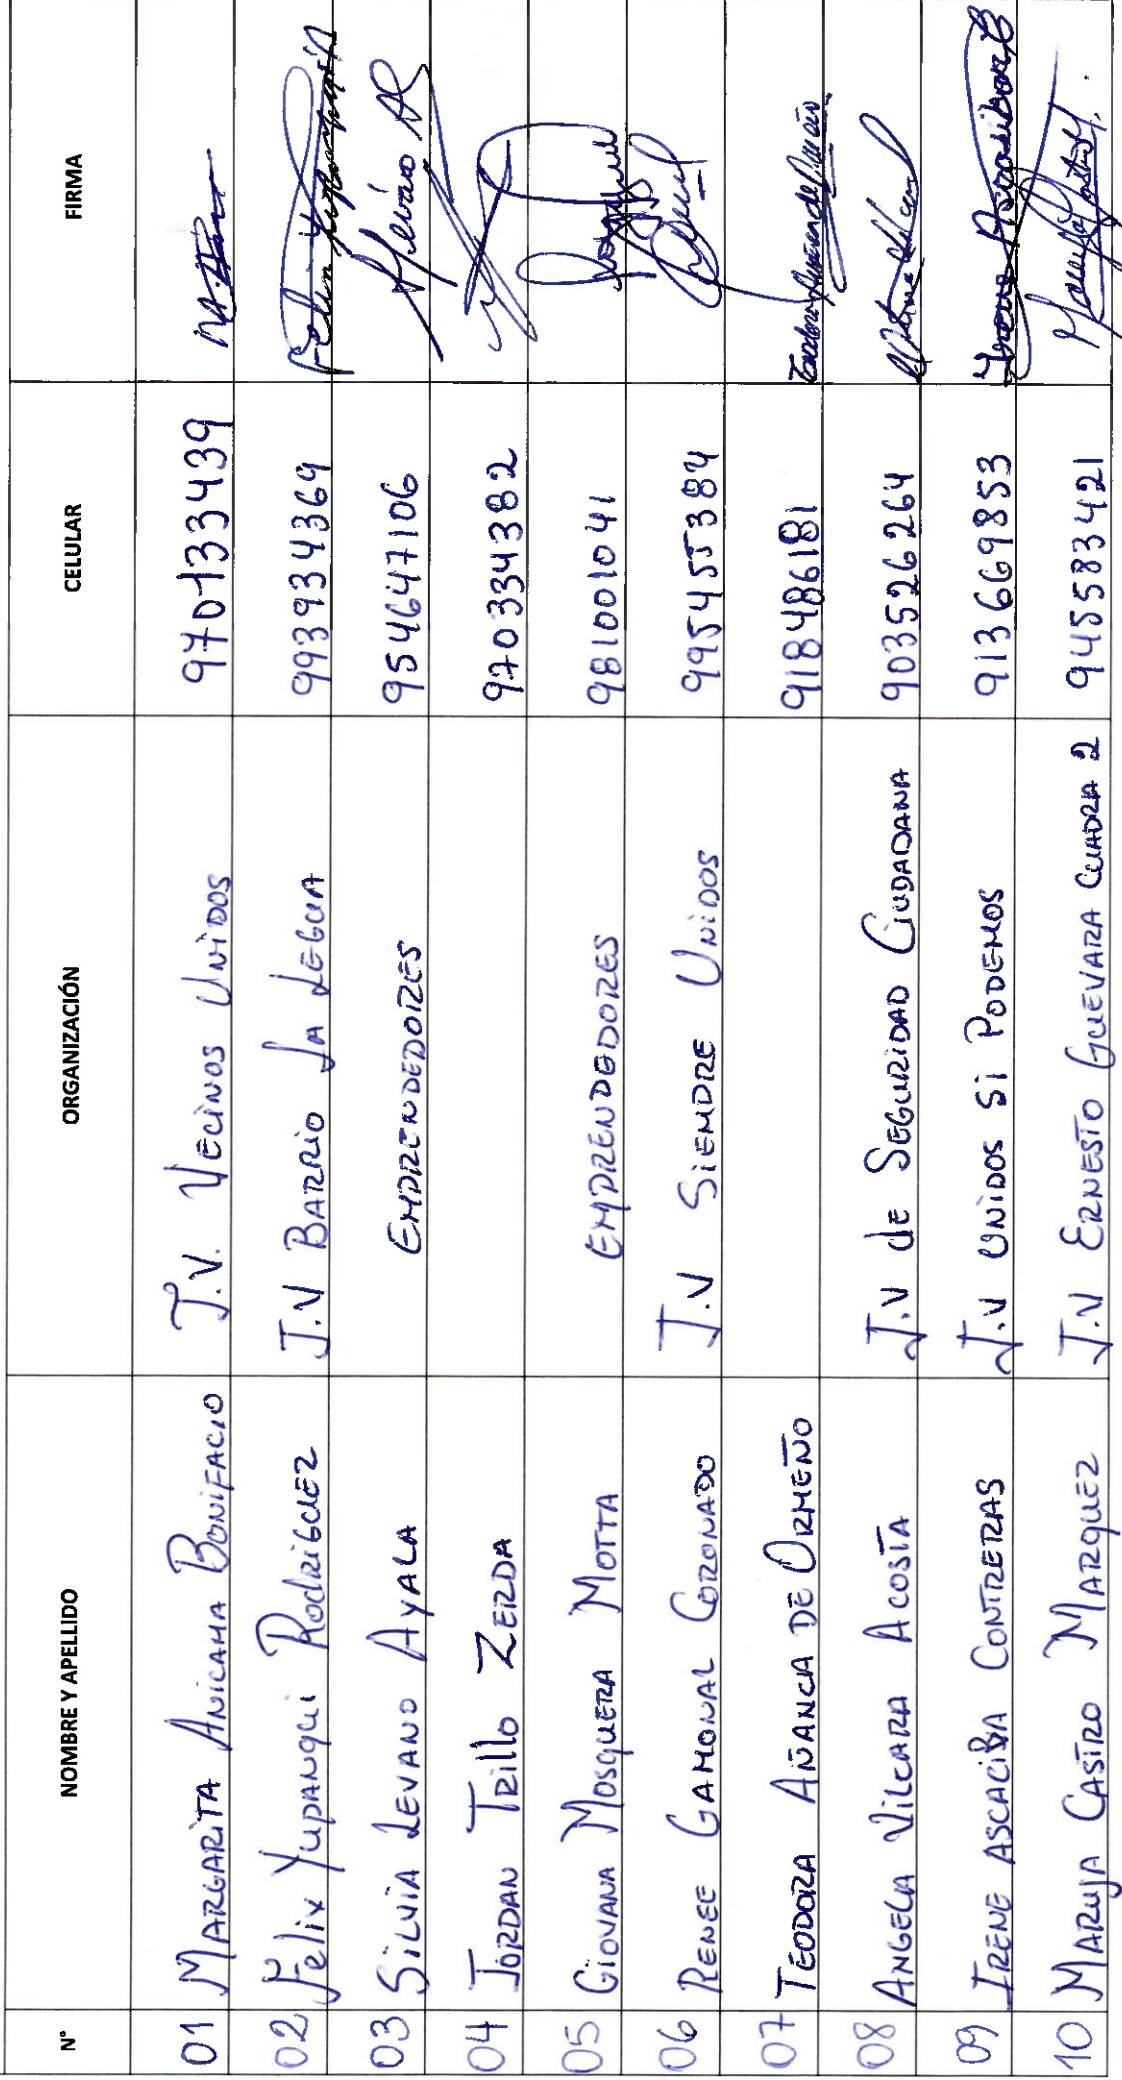 N° NOMBRE Y APELLIDO ORGANIZACIÓN CELULAR FIRMA
01 MARGARITA ANICAMA BONIFACIO J.V. VECINOS UNIDOS 970133439
02 Felix Yupanqui Rodriguez J.V BARRIO LA LEGUA 993934369
03 SILVIA LEVANO AYALA EMPRENDEDORES 954647106
04 JORDAN TRILLO ZERDA 970334382
05 GIOVANA MOSQUERA MOTTA EMPRENDEDORES 981001041
06 RENEE GAMONAL CORONADO J.V SIEMPRE UNIDOS 995455384
07 TEODORA AÑANCA DE ORMEÑO 918486181
08 ANGELA VILCARA ACOSTA J.V de SEGURIDAD CIUDADANA 903526264
09 IRENE ASCACIBA CONTRERAS J.V UNIDOS SI PODEMOS 913669853
10 MARUJA CASTRO MARQUEZ J.V ERNESTO GUEVARA CUADRA 2 945583421